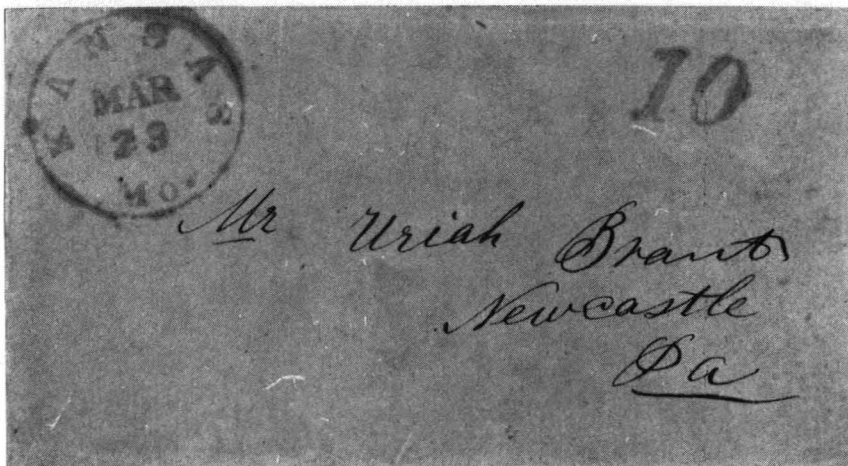 KANSAS
MAR
29
MO.
10
Mr Uriah Brant
Newcastle
Pa